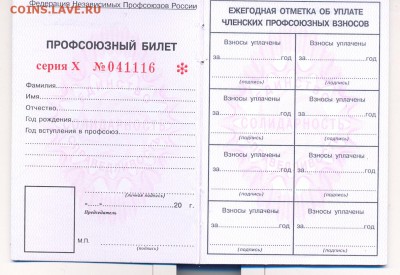 COINS.LAVE.RU
Федерация Независимых Профсоюзов России
ПРОФСОЮЗНЫЙ БИЛЕТ
серия X №041116
Фамилия
Имя
Отчество
Год рождения
Год вступления в профсоюз
(личная подпись)
"....." 20 г.
Председатель
М.П.
(подпись)
ЕЖЕГОДНАЯ ОТМЕТКА ОБ УПЛАТЕ
ЧЛЕНСКИХ ПРОФСОЮЗНЫХ ВЗНОСОВ
Взносы уплачены Взносы уплачены
за год за год
(подпись) (подпись)
Взносы уплачены Взносы уплачены
за год за год
(подпись) (подпись)
Взносы уплачены Взносы уплачены
за год за год
(подпись) (подпись)
Взносы уплачены Взносы уплачены
за год за год
(подпись) (подпись)
СОЛИДАРНОСТЬ